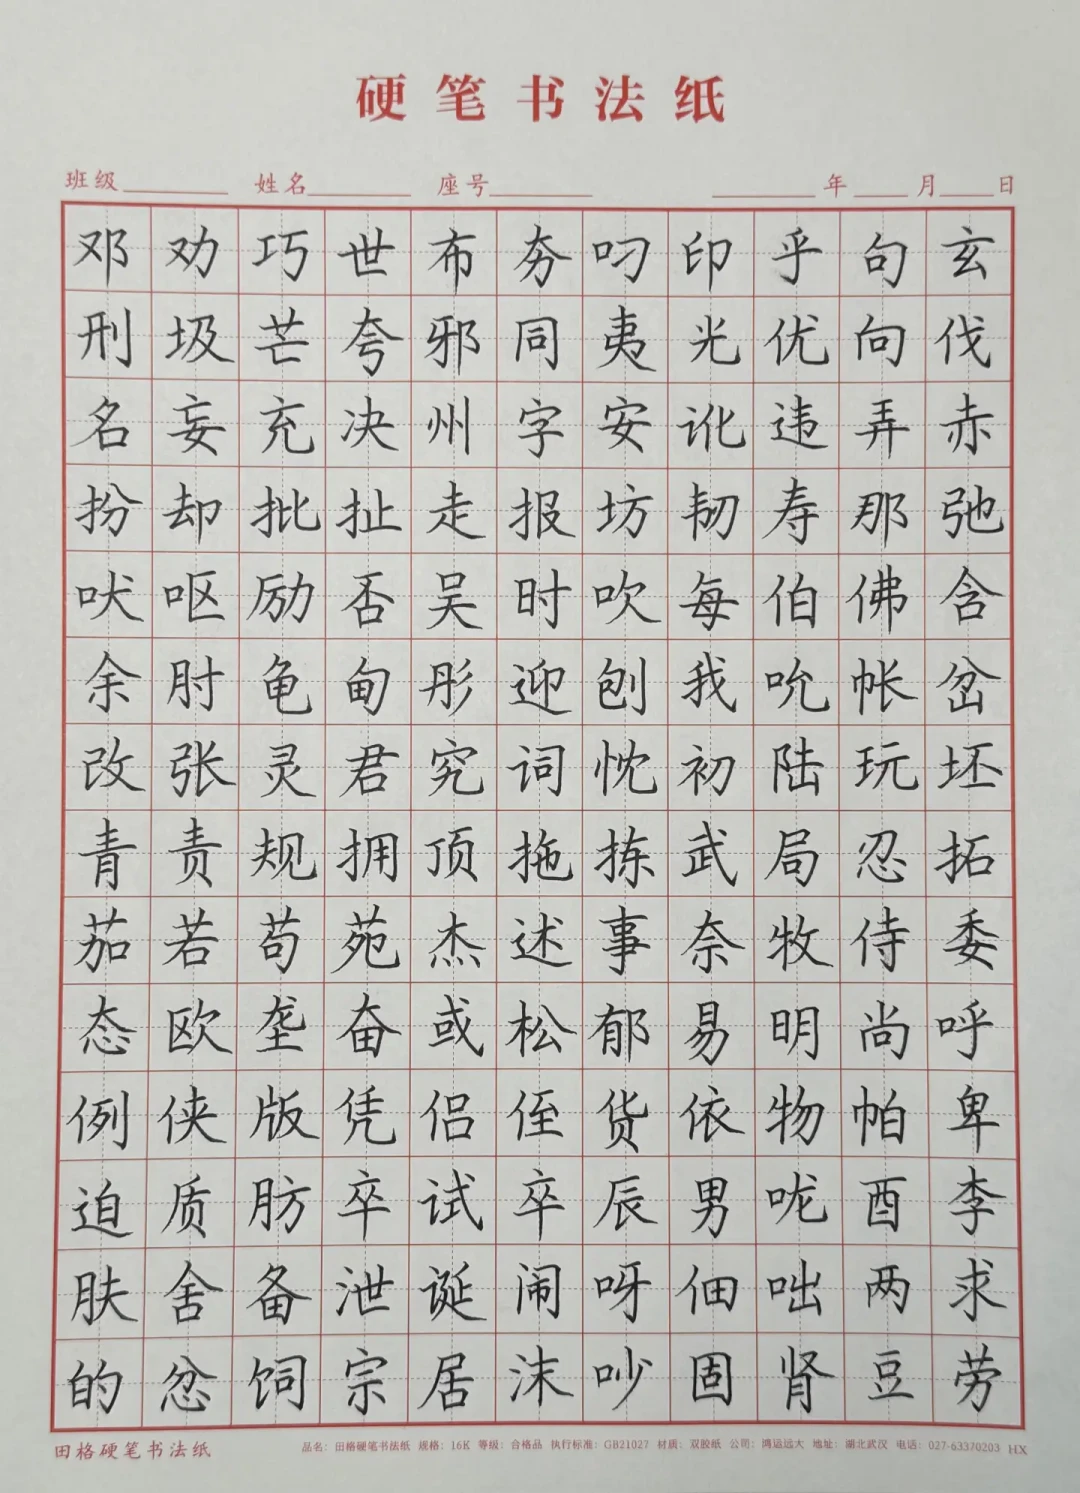 硬笔书法纸
班级 姓名 座号 年 月 日
邓劝巧世布夯叼印乎句玄
刑圾芒夸邪同夷光优向伐
名妄充决州字安讹违弄赤
扮却批扯走报坊韧寿那弛
吠呕励否吴时吹每伯佛含
余肘龟甸彤迎刨我吮帐岔
改张灵君究词忱初陆玩坯
青责规拥顶拖拣武局忍拓
茄若苟苑杰述事奈牧侍委
态欧垄奋或松郁易明尚呼
例侠版凭侣侄货依物帕卑
迫质肪卒试卒辰男咙酉李
肤舍备泄诞闹呀佃咄两求
的忿饲宗居沫吵固肾豆劳
田格硬笔书法纸 品名：田格硬笔书法纸 规格：16K 等级：合格品 执行标准：GB21027 材质：双胶纸 公司：鸿运远大 地址：湖北武汉 电话：027-63370203 HX